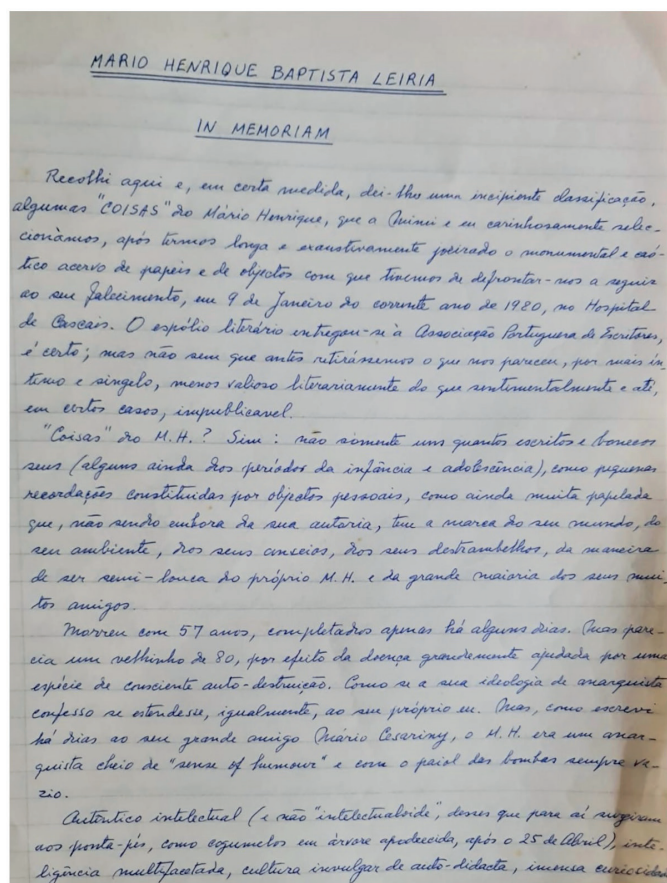 MARIO HENRIQUE BAPTISTA LEIRIA
IN MEMORIAM
Recolhi aqui e, em certa medida, dei-lhe uma incipiente classificação,
algumas "COISAS" do Mário Henrique, que a Mimi e eu carinhosamente selec-
cionámos, após termos longa e exaustivamente joeirado o monumental e caó-
tico acervo de papeis e de objectos com que tivemos de defrontar-nos a seguir
ao seu falecimento, em 9 de Janeiro do corrente ano de 1980, no Hospital
de Cascais. O espólio literário entregou-se à Associação Portuguesa de Escritores,
é certo; mas não sem que antes retirássemos o que nos pareceu, por mais ín-
timo e singelo, menos valioso literariamente do que sentimentalmente e até,
em certos casos, impublicavel.
"Coisas" do M.H.? Sim: não sòmente uns quantos escritos e bonecos
seus (alguns ainda dos períodos da infância e adolescência), como pequenas
recordações constituídas por objectos pessoais, como ainda muita papelada
que, não sendo embora da sua autoria, tem a marca do seu mundo, do
seu ambiente, dos seus anseios, dos seus destrambelhos, da maneira
de ser semi-louca do próprio M.H. e da grande maioria dos seus mui-
tos amigos.
Morreu com 57 anos, completados apenas há alguns dias. Mas pare-
cia um velhinho de 80, por efeito da doença grandemente ajudada por uma
espécie de consciente auto-destruição. Como se a sua ideologia de anarquista
confesso se estendesse, igualmente, ao seu próprio eu. Mas, como escrevi
há dias ao seu grande amigo Mário Cesariny, o M.H. era um anar-
quista cheio de "sense of humour" e com o paiol das bombas sempre va-
zio.
Autêntico intelectual (e não "intelectualoide", desses que para aí surgiram
aos ponta-pés, como cogumelos em árvore apodrecida, após o 25 de Abril), inte-
ligência multifacetada, cultura invulgar de auto-didacta, imensa curiosidad